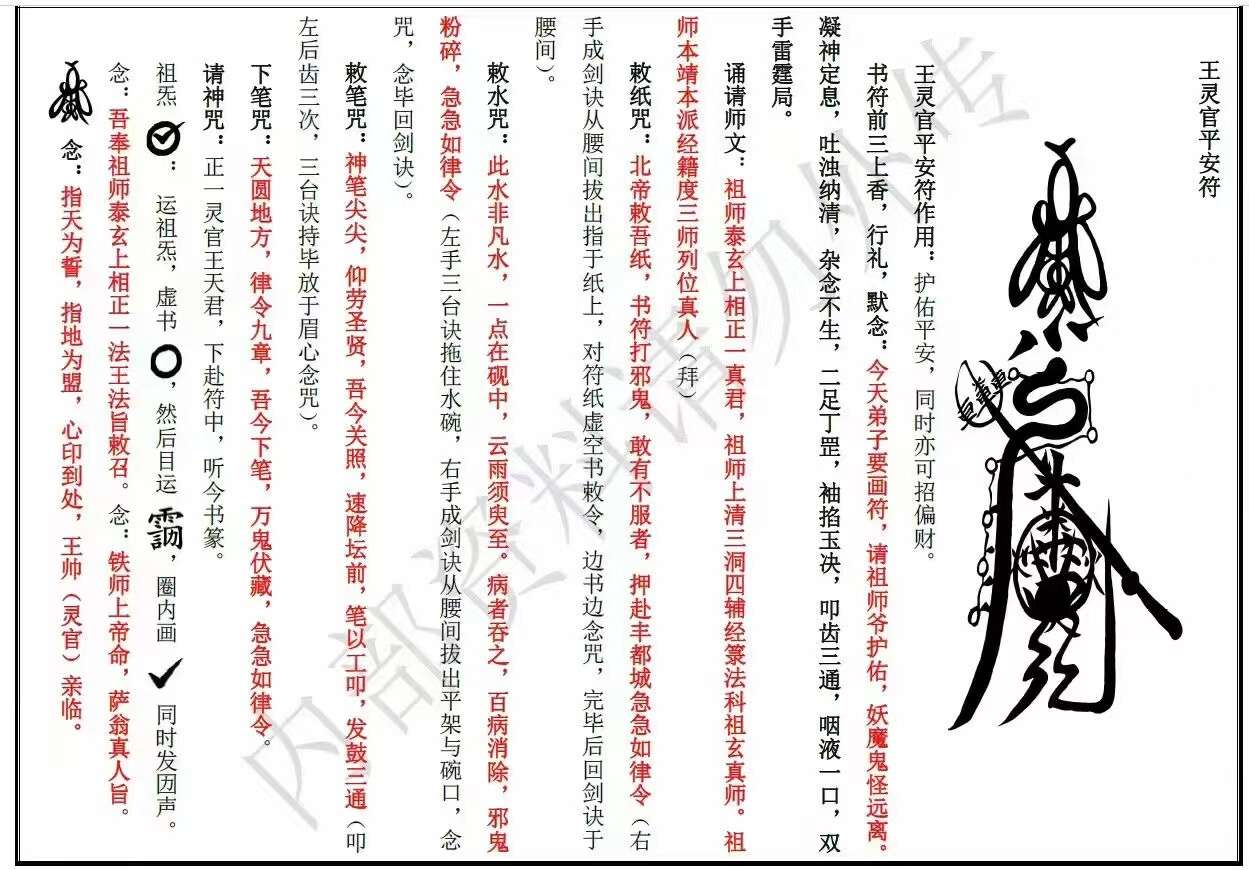 王灵官平安符
王灵官平安符作用：护佑平安，同时亦可招偏财。
书符前三上香，行礼，默念：今天弟子要画符，请祖师爷护佑，妖魔鬼怪远离。
凝神定息，吐浊纳清，杂念不生，二足丁罡，袖掐玉决，叩齿三通，咽液一口，双
手雷霆局。
诵请师文：祖师泰玄上相正一真君，祖师上清三洞四辅经箓法科祖玄真师。祖
师本靖本派经籍度三师列位真人（拜）
敕纸咒：北帝敕吾纸，书符打邪鬼，敢有不服者，押赴丰都城急急如律令（右
手成剑诀从腰间拔出指于纸上，对符纸虚空书敕令，边书边念咒，完毕后回剑诀于
腰间）。
敕水咒：此水非凡水，一点在砚中，云雨须臾至。病者吞之，百病消除，邪鬼
粉碎，急急如律令（左手三台诀拖住水碗，右手成剑诀从腰间拔出平架与碗口，念
咒，念毕回剑诀）。
敕笔咒：神笔尖尖，仰劳圣贤，吾今关照，速降坛前，笔以工叩，发鼓三通（叩
左后齿三次，三台诀持毕放于眉心念咒）。
下笔咒：天圆地方，律令九章，吾今下笔，万鬼伏藏，急急如律令。
请神咒：正一灵官王天君，下赴符中，听今书篆。
祖炁：运祖炁，虚书，然后目运，圈内画同时发历声。
念：吾奉祖师泰玄上相正一法王法旨敕召。念：铁师上帝命，萨翁真人旨。
念：指天为誓，指地为盟，心印到处，王帅（灵官）亲临。
内部资料请勿外传